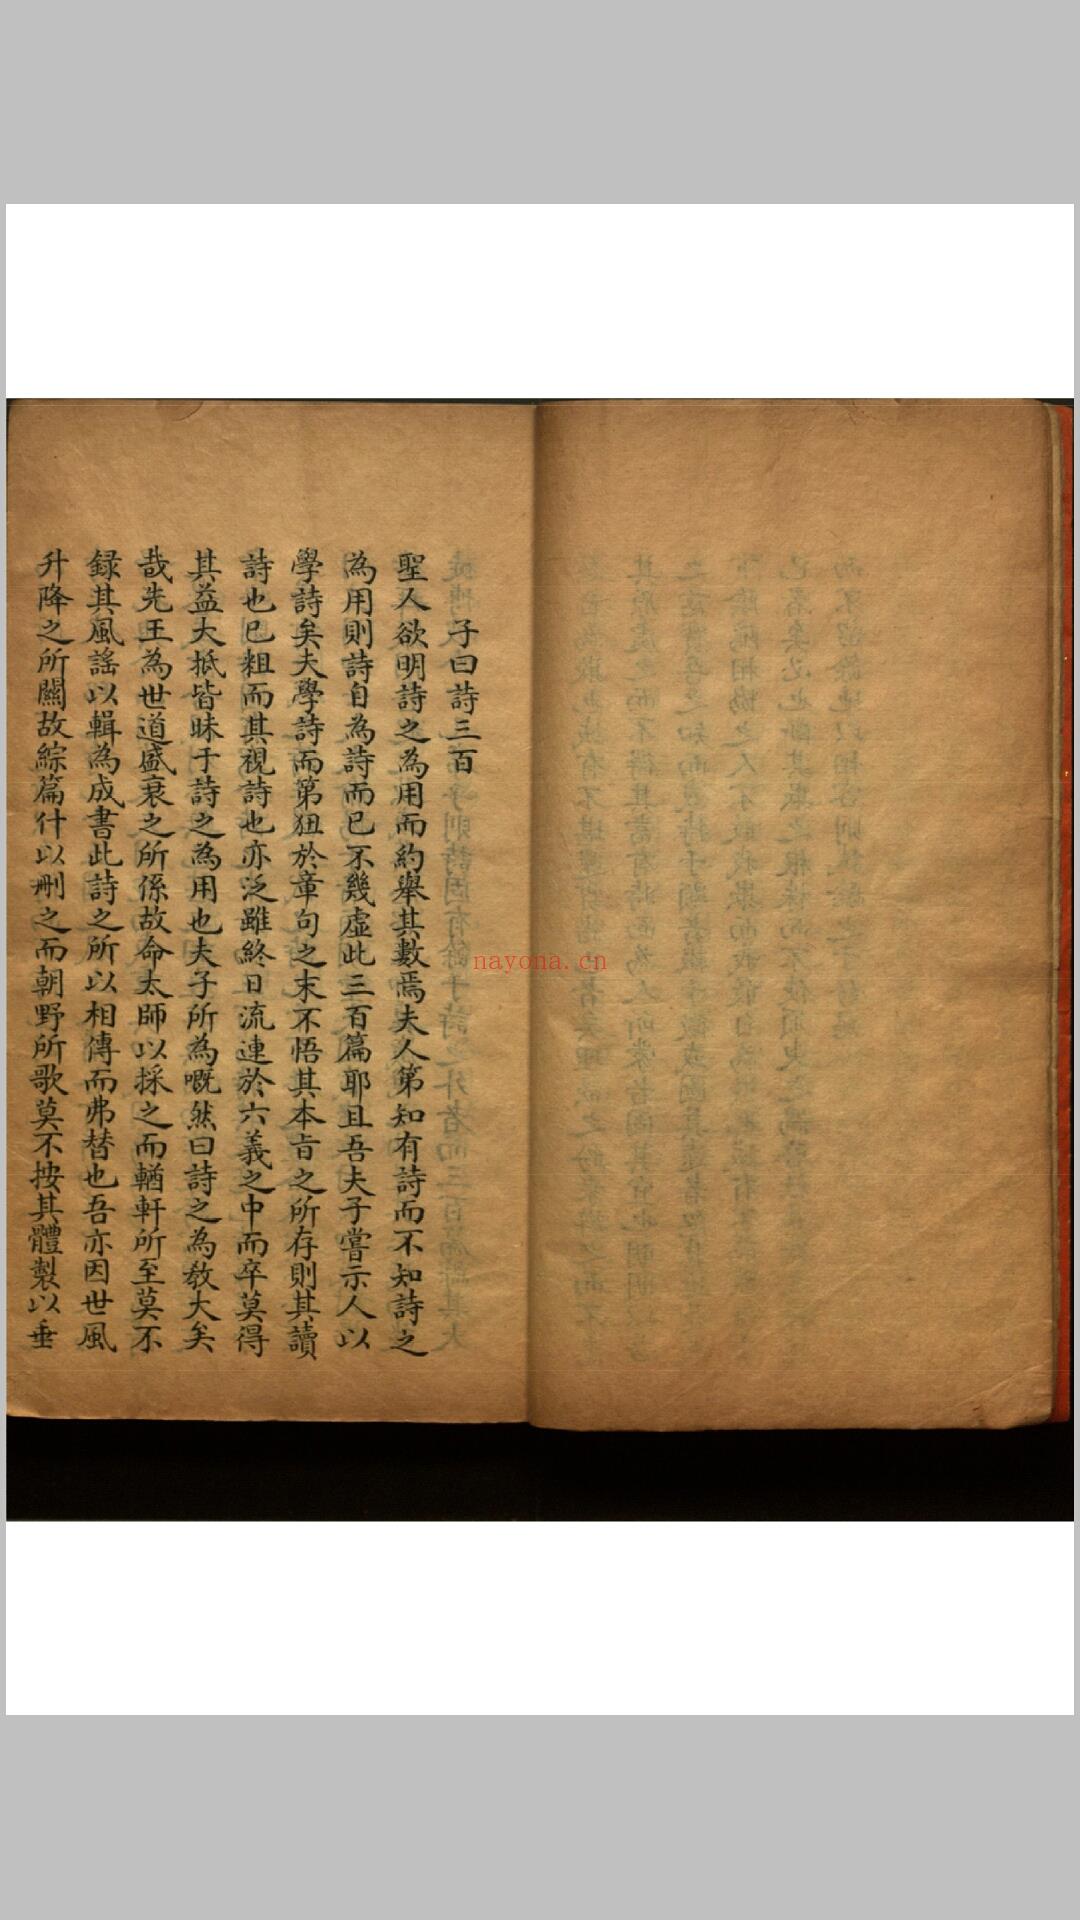 子曰詩三百
聖人欲明詩之為用而約舉其數焉夫人第知有詩而不知詩之
為用則詩自為詩而已不幾虛此三百篇耶且吾夫子嘗示人以
學詩矣夫學詩而第狃於章句之末不悟其本旨之所存則其讀
詩也已粗而其視詩也亦泛雖終日流連於六義之中而卒莫得
其益大抵皆昧于詩之為用也夫子所為嘅然曰詩之為教大矣
哉先王為世道盛衰之所係故命太師以採之而輶軒所至莫不
録其風謠以輯為成書此詩之所以相傳而弗替也吾亦因世風
升降之所關故綜篇什以刪之而朝野所歌莫不按其體製以垂
nayona.cn